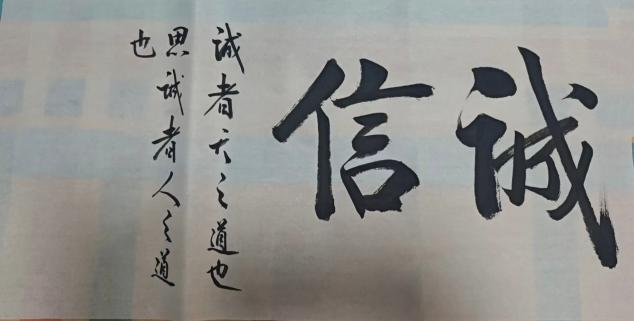 诚信
诚者天之道也
思诚者人之道
也